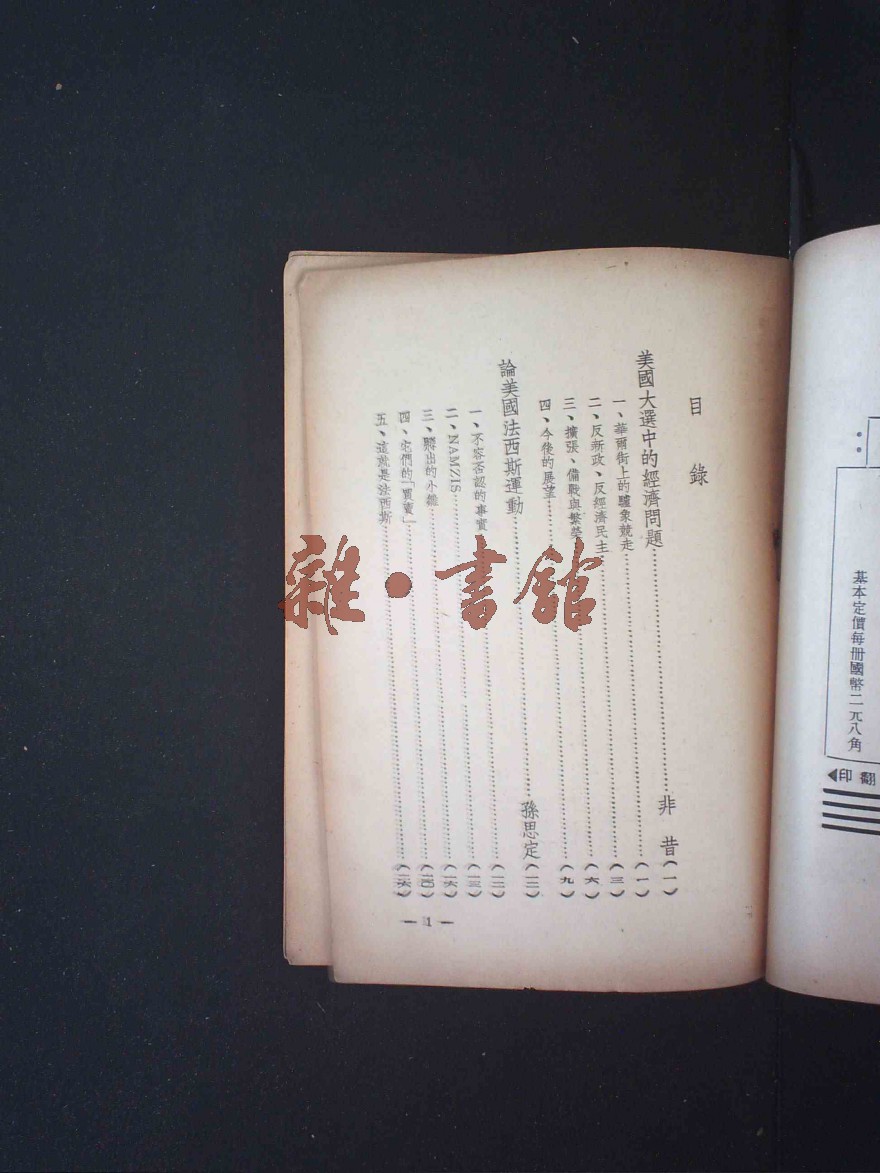 基本定價每冊國幣二元八角
翻印
目錄
美國大選中的經濟問題……非昔(一)
一、華爾街上的驢象競走……(一)
二、反新政、反經濟民主……(三)
三、擴張、備戰與繁榮……(六)
四、今後的展望……(九)
論美國法西斯運動……孫思定(一二)
一、不容否認的事實……(一二)
二、NAMZIS……(一三)
三、孵出的小雞……(一六)
四、它們的「買賣」……
五、這就是法西斯……(二六)
— 1 —
雜·書館